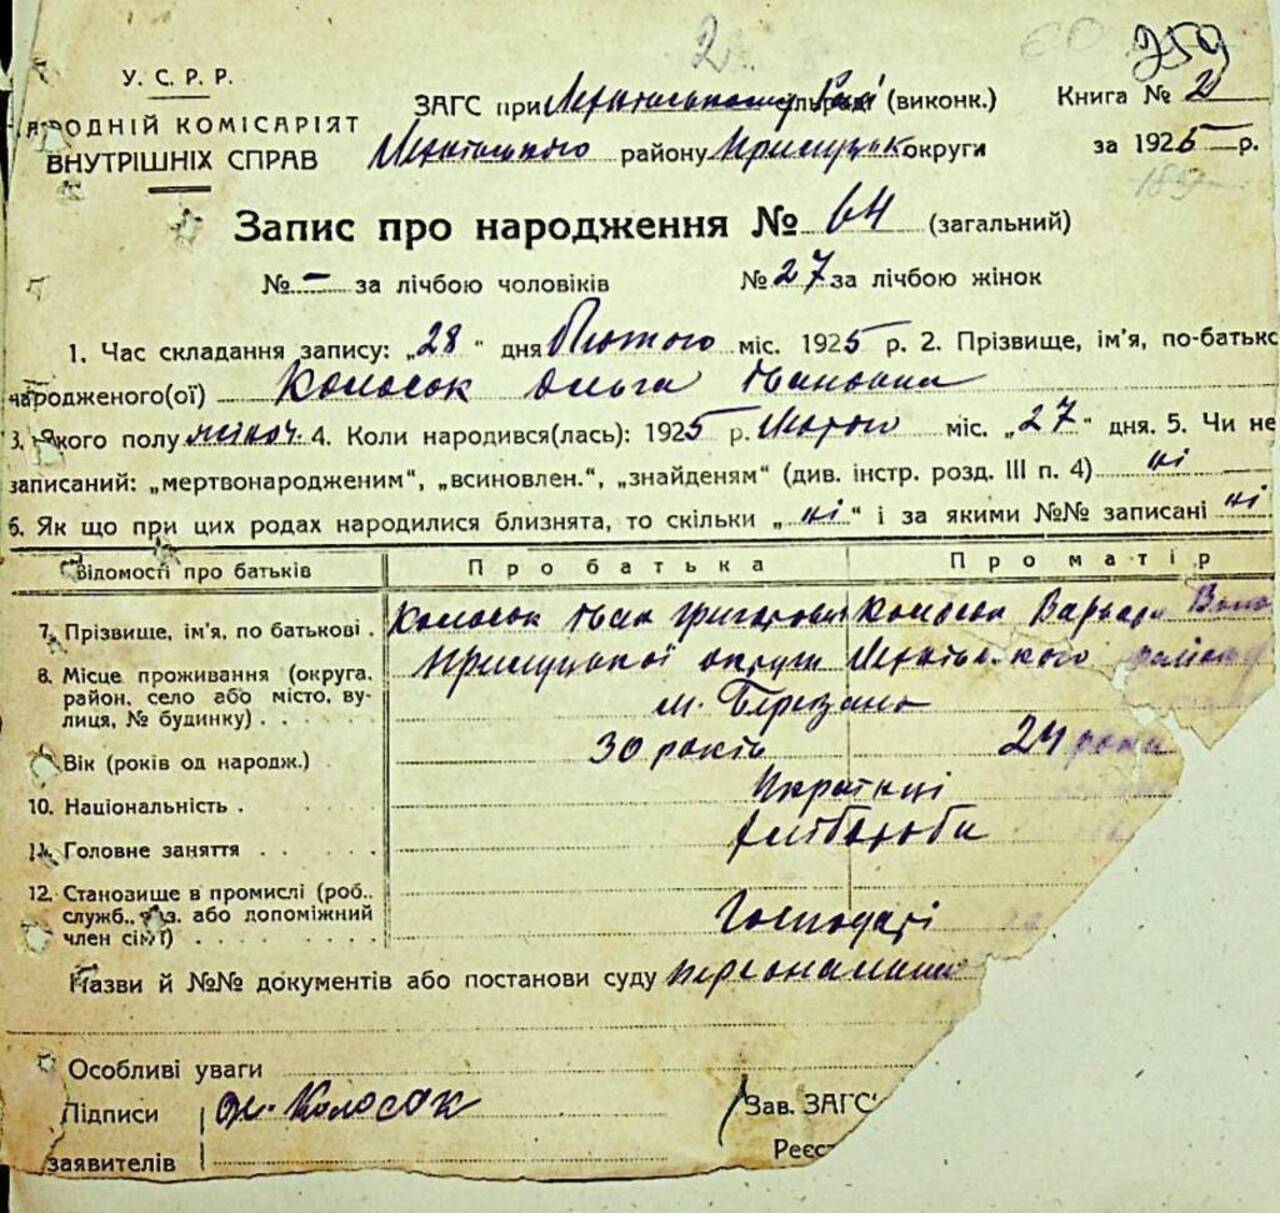 2
259
У. С. Р. Р.
НАРОДНІЙ КОМІСАРІЯТ
ВНУТРІШНІХ СПРАВ
ЗАГС при (виконк.)
Книга № 2
району округи
за 1925 р.
Запис про народження № 64 (загальний)
№ — за лічбою чоловіків № 27 за лічбою жінок
1. Час складання запису: „28" дня Лютого міс. 1925 р. 2. Прізвище, ім'я, по-батьк
народженого(ої) Колосок Ольга Івановна
3. Якого полу жіноч. 4. Коли народився(лась): 1925 р. Лютого міс. „27" дня. 5. Чи не
записаний: „мертвонародженим", „всиновлен.", „знайденям" (див. інстр. розд. III п. 4) ні
6. Як що при цих родах народилися близнята, то скільки „ні" і за якими №№ записані ні
Відомості про батьків Про батька Про матір
7. Прізвище, ім'я, по батькові. Колосок Іван Григорович Колосок Варвара
8. Місце проживання (округа, район, село або місто, вулиця, № будинку) Прилуцької округи
м. Березань
9. Вік (років од народж.) 30 років 24 роки
10. Національність . Українці
11. Головне заняття . . . . хліборобі
12. Становище в промислі (роб., служб., газ. або допоміжний член сім'ї) . . . . Господарі
Назви й №№ документів або постанови суду
Особливі уваги
Підписи Ол. Колосок Зав. ЗАГС'
заявителів Реєст